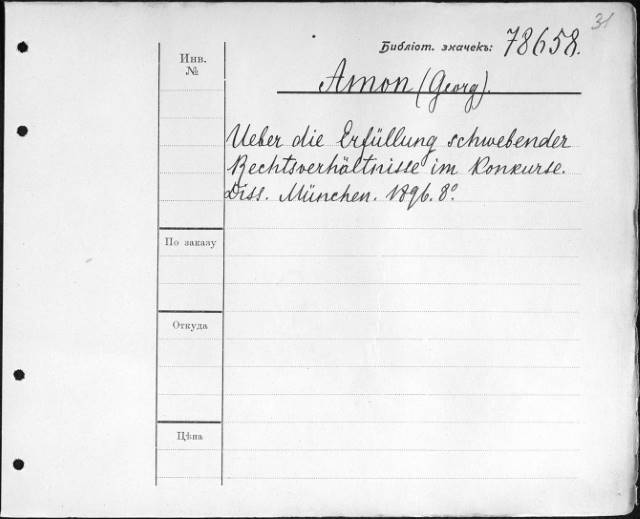 31
Библіот. значекъ: 78658.
Инв.
№
Amon (Georg).
Ueber die Erfüllung schwebender
Rechtsverhältnisse im Konkurse.
Diss. München. 1896. 8°.
По заказу
Откуда
Цѣна